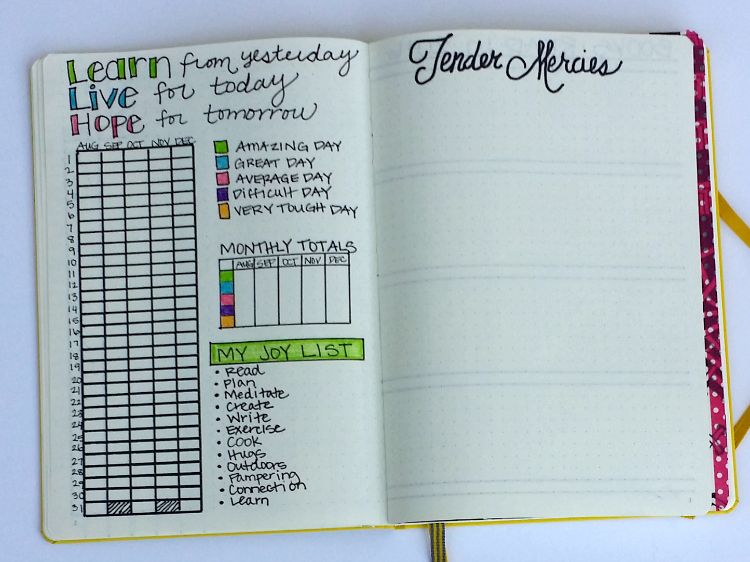 Learn from yesterday
Live for today
Hope for tomorrow
AUG SEP OCT NOV DEC
1
2
3
4
5
6
7
8
9
10
11
12
13
14
15
16
17
18
19
20
21
22
23
24
25
26
27
28
29
30
31
AMAZING DAY
GREAT DAY
AVERAGE DAY
Difficult DAY
VERY TOUGH DAY
MONTHLY TOTALS
AUG SEP OCT NOV DEC
MY JOY LIST
• Read
• Plan
• Meditate
• Create
• Write
• Exercise
• Cook
• Hugs
• Outdoors
• Pampering
• Connection
• Learn
Tender Mercies